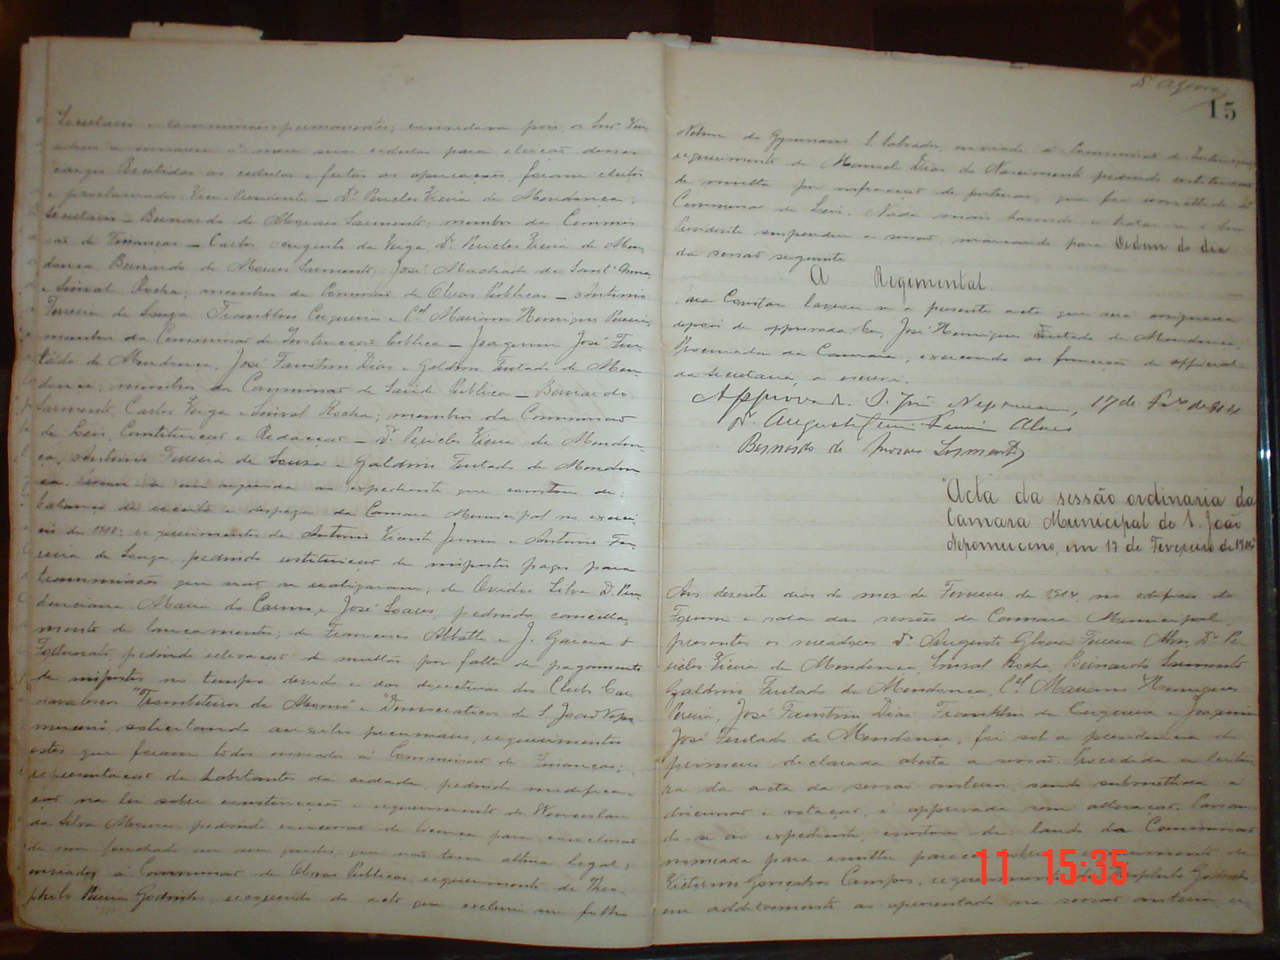 Secretario e commissões permanentes; convidava pois, os Snrs Vere-
adores a
cargos. Recebidas as cedulas e feitas as apurações, foram eleitos
e proclamados: Vice-Presidente — Dr Pericles Vieira de Mendonça;
Secretario — Bernardo de Moraes Sarmento; membros da Commis-
são de Finanças — Carlos Augusto da Veiga, Dr. Pericles Vieira de Men-
donça, Bernardo de Moraes Sarmento, José Machado de Sant'Anna
e Sinival Rocha; membros da Commissão de Obras Publicas — Antonio
Ferreira de Souza, Franklin Cerqueira e Cel Mariano Henriques Pereira;
membros da Commissão de Instrucção Publica — Joaquim José Fur-
tado de Mendonça, José Faustino Dias e Galdino Furtado de Men-
donça; membros da Commissão de Saúde Publica — Bernardo
Sarmento, Carlos Veiga e Sinival Rocha; membros da Commissão
de Leis, Constituição e Redacção — Dr. Pericles Vieira de Mendon-
ça, Antonio Ferreira de Souza e Galdino Furtado de Mendon-
ça. em seguida ao expediente que constou de:
balanço da receita e despeza da Camara Municipal no exerci-
cio de 1913; requerimentos de Antonio Vicente e Antonio Fer-
reira de Souza, pedindo restituição de impostos pagos para
transmissões que não se realizaram; de Ovidio Silva, D. Pru-
denciana Maria do Carmo e José Soares, pedindo cancella-
mento de lançamentos; de Francisco Abbatte e J. Garcia &
Fortunato, pedindo relevação de multas por falta de pagamento
de impostos no tempo devido e das directorias dos Clubs Car-
navalescos "Trombeteiros de Momo" e "Democraticos de S. João Nepo-
muceno, solicitando auxilios pecuniarios, requerimentos
estes que foram todos enviados á Commissão de Finanças;
representação de habitantes da cidade, pedindo modifica-
ção na lei sobre construcções e requerimento de Wenceslau
da Silva pedindo concessão de licença para conclusão
de um que não tem altura legal,
enviados á Commissão de Obras Publicas, requerimento de Theo-
philo Pereira Godinho, recorrendo do acto que excluiu seu filho
15
Nelson do Gymnasio S. Salvador, enviado á Commissão de Instrucção;
requerimento de Manoel Dias do Nascimento pedindo restituição
de multa por infracção de posturas, que foi remettido á
Commissão de Leis. Nada mais havendo a tratar-se o Snr
Presidente suspendeu a sessão, marcando para Ordem do dia
da sessão seguinte
A Regimental.
Para Constar lavrou-se a presente acta que será assignada
depois de approvada. Eu, José Henriques Furtado de Mendonça,
Procurador da Camara, exercendo as funcções de official
da secretaria, a escrevi.
Approvada. S. João Nepomuceno, 17 de Fevº de 914
Dr. Augusto Gloria Ferreira Alves
Bernardo de Moraes Sarmento
Acta da sessão ordinaria da
Camara Municipal de S. João
Nepomuceno, em 17 de Fevereiro de 1914
Aos dezesete dias do mez de Fevereiro de 1914, no edificio do
Forum e sala das sessões da Camara Municipal,
presentes os vereadores Dr. Augusto Gloria Ferreira Alves, Dr. Pe-
ricles Vieira de Mendonça, Sinival Rocha, Bernardo Sarmento
Galdino Furtado de Mendonça, Cel Mariano Henriques
Pereira, José Faustino Dias, Franklin de Cerqueira e Joaquim
José Furtado de Mendonça, foi sob a presidencia do
primeiro declarada aberta a sessão. Procedida a leitu-
ra da acta da sessão anterior, sendo submettida á
discussão e votação, é approvada sem alteração. Passan-
do-se ao expediente, constou de: laudo da Commissão
nomeada para emittir parecer sobre requerimento de
Victorino Gonçalves Campos, requerimento de Theophilo Godinho,
em additamento ao apresentado na sessão anterior e
11 15:35